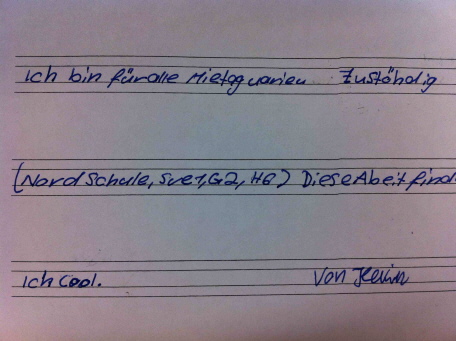 Ich bin füralle Mietaquarien Zuständig
(Nord Schule, Sve1, G2, HG) Diese Abeit find
Ich Cool. Von Kevin